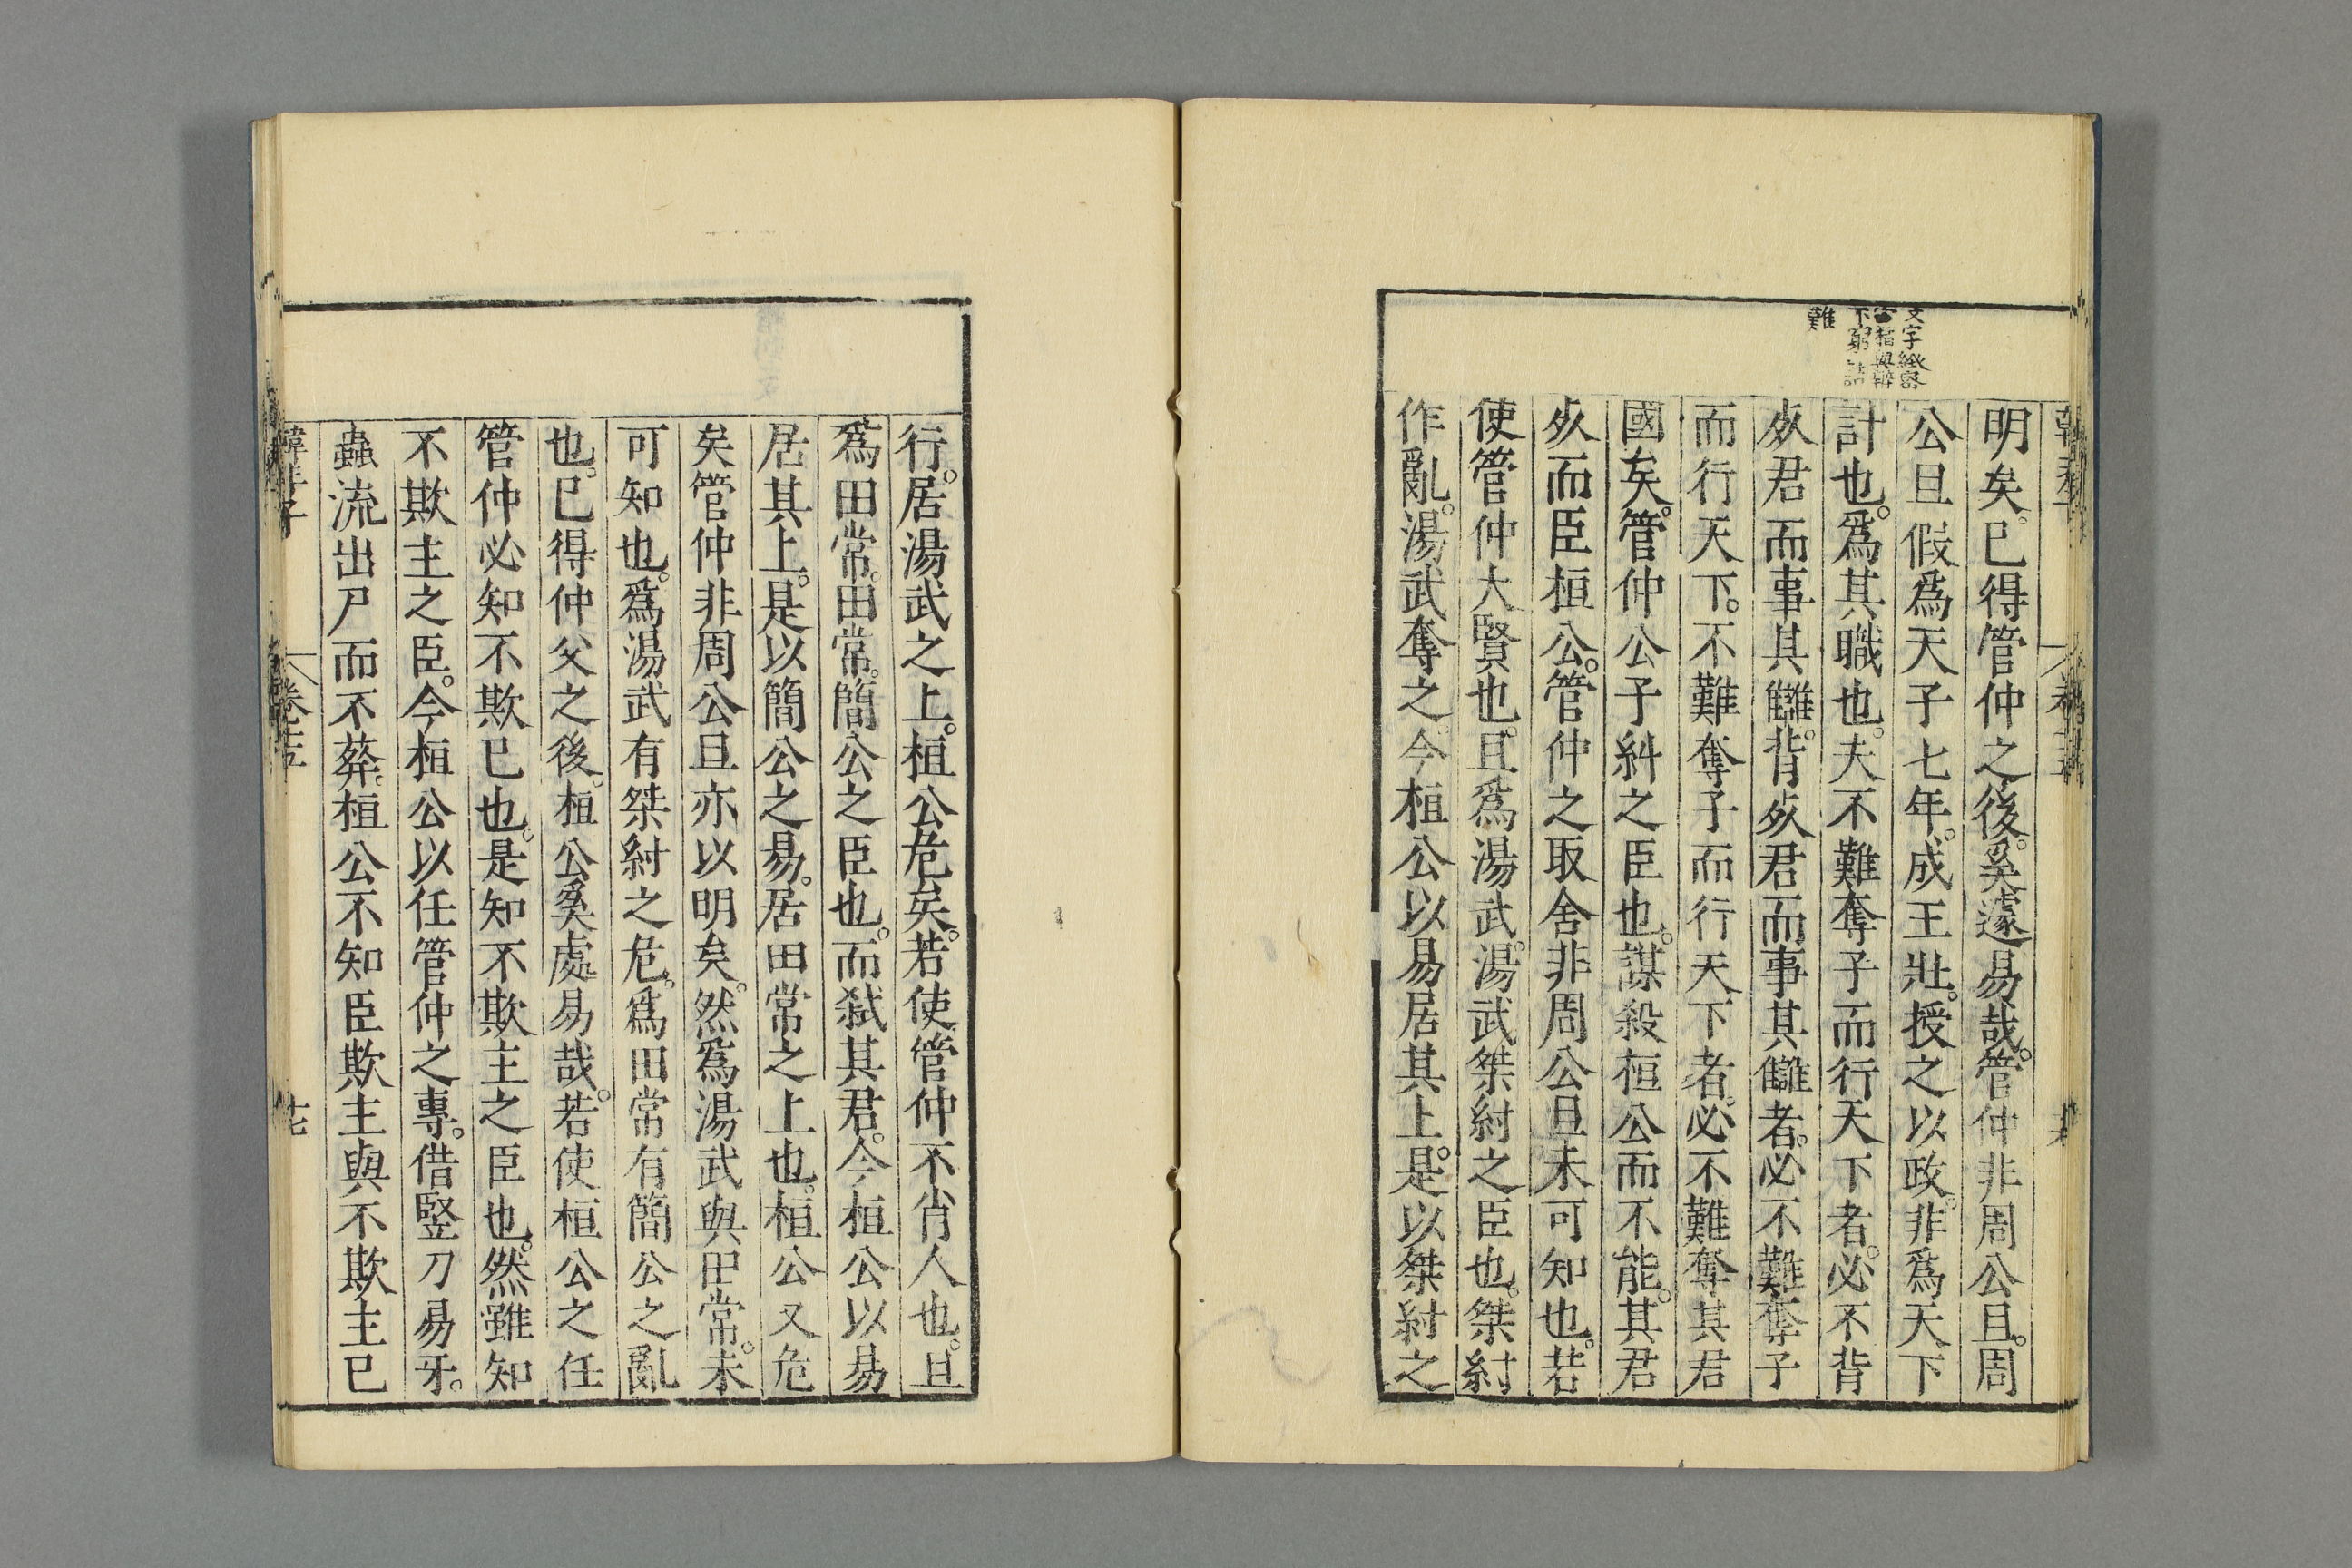 文字緻密
難
明矣。已得管仲之後。奚遽易哉。管仲非周公旦。周
公旦假爲天子七年。成王壯。授之以政。非爲天下
計也。爲其職也。夫不難奪子而行天下者。必不背
死君而事其讎。背死君而事其讎者。必不難奪子
而行天下。不難奪子而行天下者。必不難奪其君
國矣。管仲公子糾之臣也。謀殺桓公而不能。其君
死而臣桓公。管仲之取舍非周公旦未可知也。若
使管仲大賢也。且爲湯武。湯武桀紂之臣也。桀紂
作亂。湯武奪之今桓公以易居其上。是以桀紂之
行。居湯武之上。桓公危矣。若使管仲不肖人也。且
爲田常。田常。簡公之臣也。而弒其君。今桓公以易
居其上。是以簡公之易。居田常之上也。桓公又危
矣管仲非周公旦亦以明矣。然爲湯武與田常。未
可知也。爲湯武有桀紂之危。爲田常有簡公之亂
也。已得仲父之後。桓公奚處易哉。若使桓公之任
管仲必知不欺已也。是知不欺主之臣也。然雖知
不欺主之臣。今桓公以任管仲之專。借豎刀易牙。
蟲流出尸而不葬。桓公不知臣欺主與不欺主已
韓非子
卷十五
十七